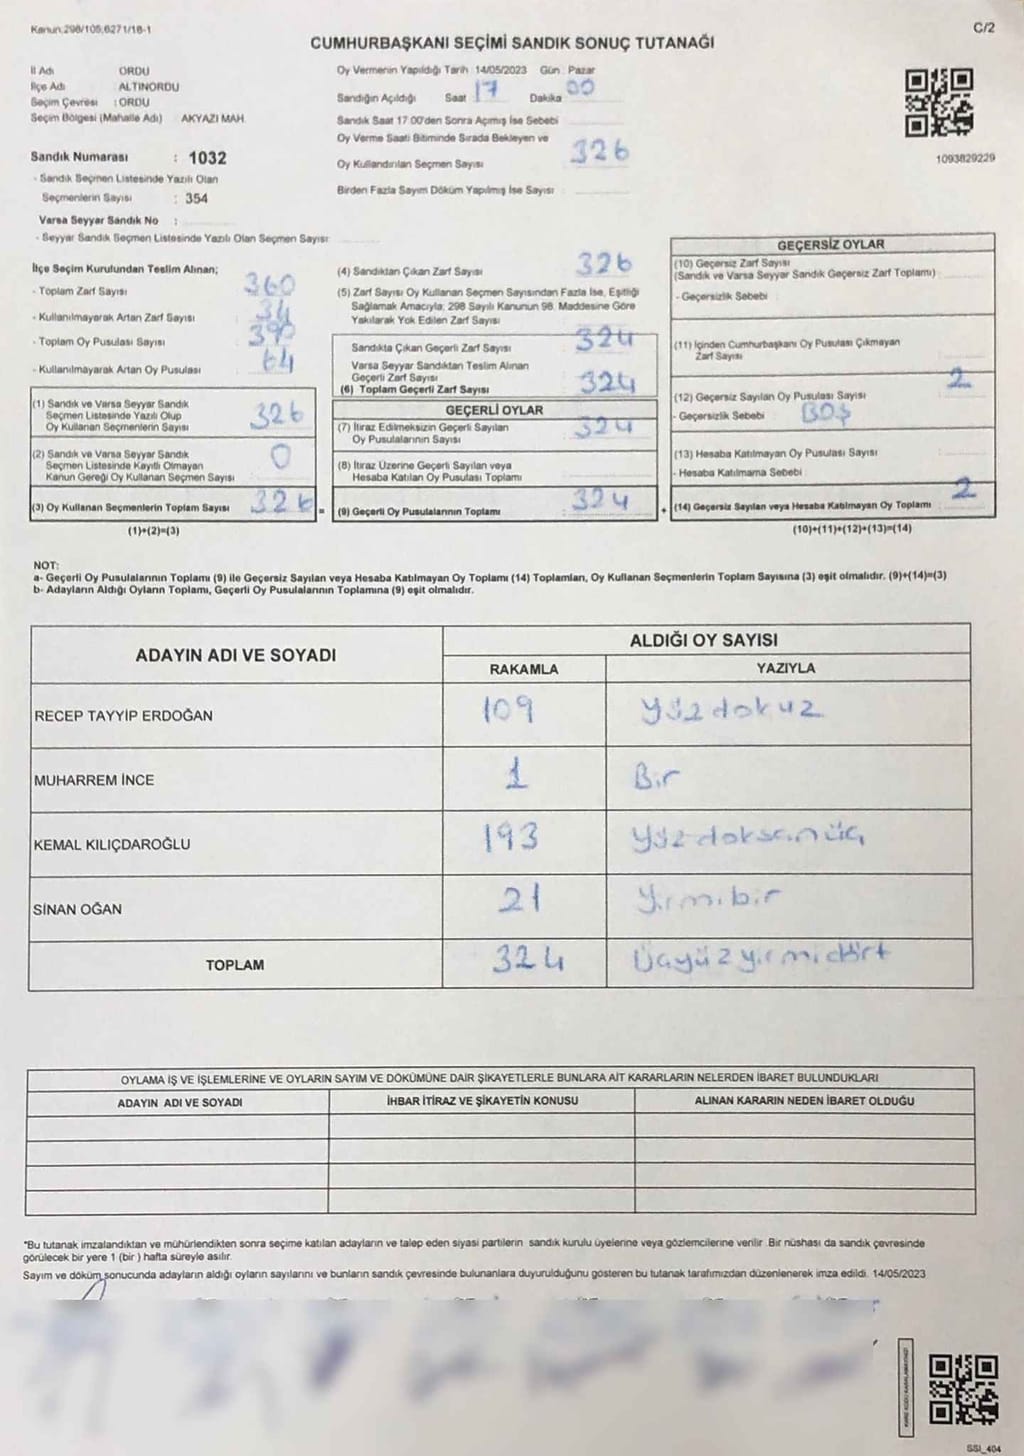 Kanun.298/105,6271/18-1
C/2
CUMHURBAŞKANI SEÇİMİ SANDIK SONUÇ TUTANAĞI
İl Adı ORDU
İlçe Adı : ALTINORDU
Seçim Çevresi : ORDU
Seçim Bölgesi (Mahalle Adı) AKYAZI MAH.
Sandık Numarası : 1032
- Sandık Seçmen Listesinde Yazılı Olan
Seçmenlerin Sayısı : 354
Varsa Seyyar Sandık No :
- Seyyar Sandık Seçmen Listesinde Yazılı Olan Seçmen Sayısı:
Oy Vermenin Yapıldığı Tarih : 14/05/2023 Gün : Pazar
Sandığın Açıldığı Saat 17 Dakika 00
Sandık Saat 17:00'den Sonra Açımış İse Sebebi
Oy Verme Saati Bitiminde Sırada Bekleyen ve
Oy Kullandırılan Seçmen Sayısı 326
Birden Fazla Sayım Döküm Yapılmış İse Sayısı :
1093829229
İlçe Seçim Kurulundan Teslim Alınan;
- Toplam Zarf Sayısı : 360
- Kullanılmayarak Artan Zarf Sayısı : 34
- Toplam Oy Pusulası Sayısı : 390
- Kullanılmayarak Artan Oy Pusulası : 64
(1) Sandık ve Varsa Seyyar Sandık
Seçmen Listesinde Yazılı Olup
Oy Kullanan Seçmenlerin Sayısı 326
(2) Sandık ve Varsa Seyyar Sandık
Seçmen Listesinde Kayıtlı Olmayan
Kanun Gereği Oy Kullanan Seçmen Sayısı 0
(3) Oy Kullanan Seçmenlerin Toplam Sayısı 326 =
(1)+(2)=(3)
(4) Sandıktan Çıkan Zarf Sayısı 326
(5) Zarf Sayısı Oy Kullanan Seçmen Sayısından Fazla İse, Eşitliği
Sağlamak Amacıyla; 298 Sayılı Kanunun 98. Maddesine Göre
Yakılarak Yok Edilen Zarf Sayısı
Sandıkta Çıkan Geçerli Zarf Sayısı 324
Varsa Seyyar Sandıktan Teslim Alınan
Geçerli Zarf Sayısı
(6) Toplam Geçerli Zarf Sayısı 324
GEÇERLİ OYLAR
(7) İtiraz Edilmeksizin Geçerli Sayılan
Oy Pusulalarının Sayısı 324
(8) İtiraz Üzerine Geçerli Sayılan veya
Hesaba Katılan Oy Pusulası Toplamı
(9) Geçerli Oy Pusulalarının Toplamı 324 +
GEÇERSİZ OYLAR
(10) Geçersiz Zarf Sayısı
(Sandık ve Varsa Seyyar Sandık Geçersiz Zarf Toplamı) :
- Geçersizlik Sebebi :
(11) İçinden Cumhurbaşkanı Oy Pusulası Çıkmayan
Zarf Sayısı
(12) Geçersiz Sayılan Oy Pusulası Sayısı 2
- Geçersizlik Sebebi : BOŞ
(13) Hesaba Katılmayan Oy Pusulası Sayısı
- Hesaba Katılmama Sebebi
(14) Geçersiz Sayılan veya Hesaba Katılmayan Oy Toplamı 2
(10)+(11)+(12)+(13)=(14)
NOT:
a- Geçerli Oy Pusulalarının Toplamı (9) ile Geçersiz Sayılan veya Hesaba Katılmayan Oy Toplamı (14) Toplamları, Oy Kullanan Seçmenlerin Toplam Sayısına (3) eşit olmalıdır. (9)+(14)=(3)
b- Adayların Aldığı Oyların Toplamı, Geçerli Oy Pusulalarının Toplamına (9) eşit olmalıdır.
ADAYIN ADI VE SOYADI
ALDIĞI OY SAYISI
RAKAMLA YAZIYLA
RECEP TAYYİP ERDOĞAN 109 Yüzdokuz
MUHARREM İNCE 1 Bir
KEMAL KILIÇDAROĞLU 193 Yüzdoksanüç
SİNAN OĞAN 21 Yirmibir
TOPLAM 324 Üçyüzyirmidört
OYLAMA İŞ VE İŞLEMLERİNE VE OYLARIN SAYIM VE DÖKÜMÜNE DAİR ŞİKAYETLERLE BUNLARA AİT KARARLARIN NELERDEN İBARET BULUNDUKLARI
ADAYIN ADI VE SOYADI İHBAR İTİRAZ VE ŞİKAYETİN KONUSU ALINAN KARARIN NEDEN İBARET OLDUĞU
*Bu tutanak imzalandıktan ve mühürlendikten sonra seçime katılan adayların ve talep eden siyasi partilerin sandık kurulu üyelerine veya gözlemcilerine verilir .Bir nüshası da sandık çevresinde
görülecek bir yere 1 (bir ) hafta süreyle asılır.
Sayım ve döküm sonucunda adayların aldığı oyların sayılarını ve bunların sandık çevresinde bulunanlara duyurulduğunu gösteren bu tutanak tarafımızdan düzenlenerek imza edildi. 14/05/2023
SSI_404